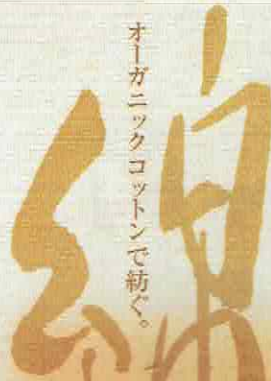 綿
オーガニックコットンで紡ぐ。